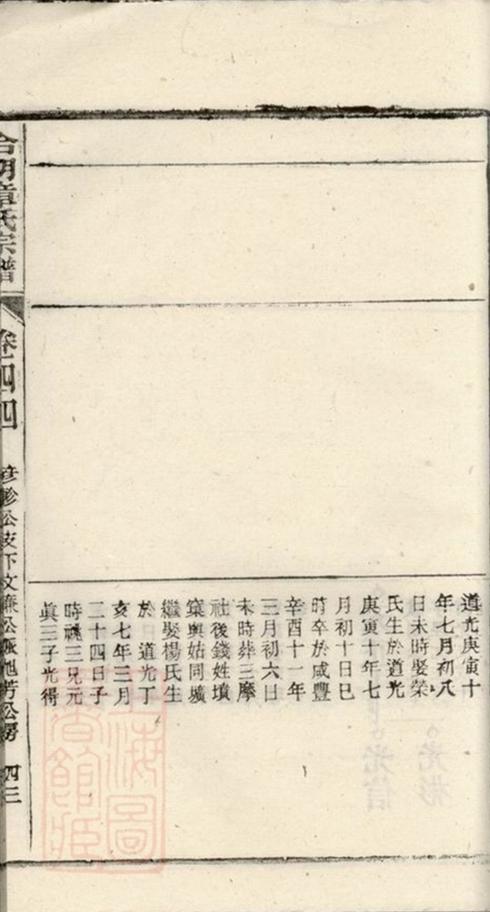 道光庚寅十
年七月初八
日未時娶榮
氏生於道光
庚寅十年七
月初十日巳
時卒於咸豐
辛酉十一年
三月初六日
未時葬三摩
社後錢姓墳
窠與姑同壙
繼娶楊氏生
於 道光丁
亥七年三月
二十四日子
時祧三兄元
眞三子光得
明章氏宗譜
公支下文廉公派旭芳公房 四三
上海圖書館藏